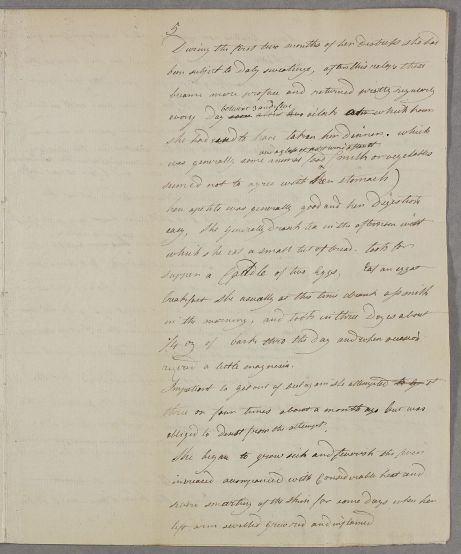 5
During the first two months of her distress she had
been subject to Daly sweatings, after this relaps these
became more profuse and returned pretty regularly
every Day between 3 and five o'clock which hour
she had used to have taken her dinner. which
was generally some animal food (milk or vegetables
seemed not to agree with her stomach)
her apetite was generally good and her Digestion
easy, She generally drank tea in the afternoon with
which she eat a small bit of bread. took for
supper a of two Eggs,
breakfast She usually at this time drank ass milk
in the morning, and took in three Doses about
3/4 oz of bark thro the day and when
a little magnesia.
Impatient to get out of bed again she attempted it
three or four times about a month ago but was
obliged to desist from the attempt.
She began to grow sick and feverish the fever
increased accompanied with Considerable heat and
severe smarting of the skin for some days when her
left arm swelled grew red and inflamed